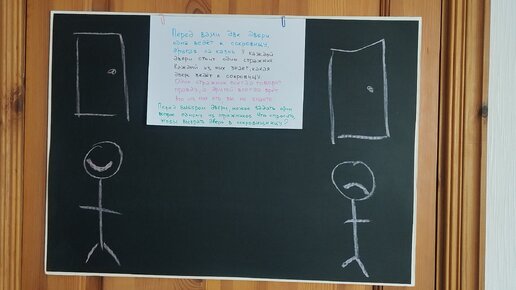 Перед вами две двери.
одна ведет к сокровищу,
другая на казнь. У каждой
двери стоит один стражник
каждый из них знает, какая
дверь ведет к сокровищу.
Один стражник всегда говорит
правду, а другой всегда врёт
Кто из них кто вы не знаете.
Перед выбором двери, можно задать один
вопрос одному из стражников. Что спросить
чтобы выбрать дверь в сокровищницу?